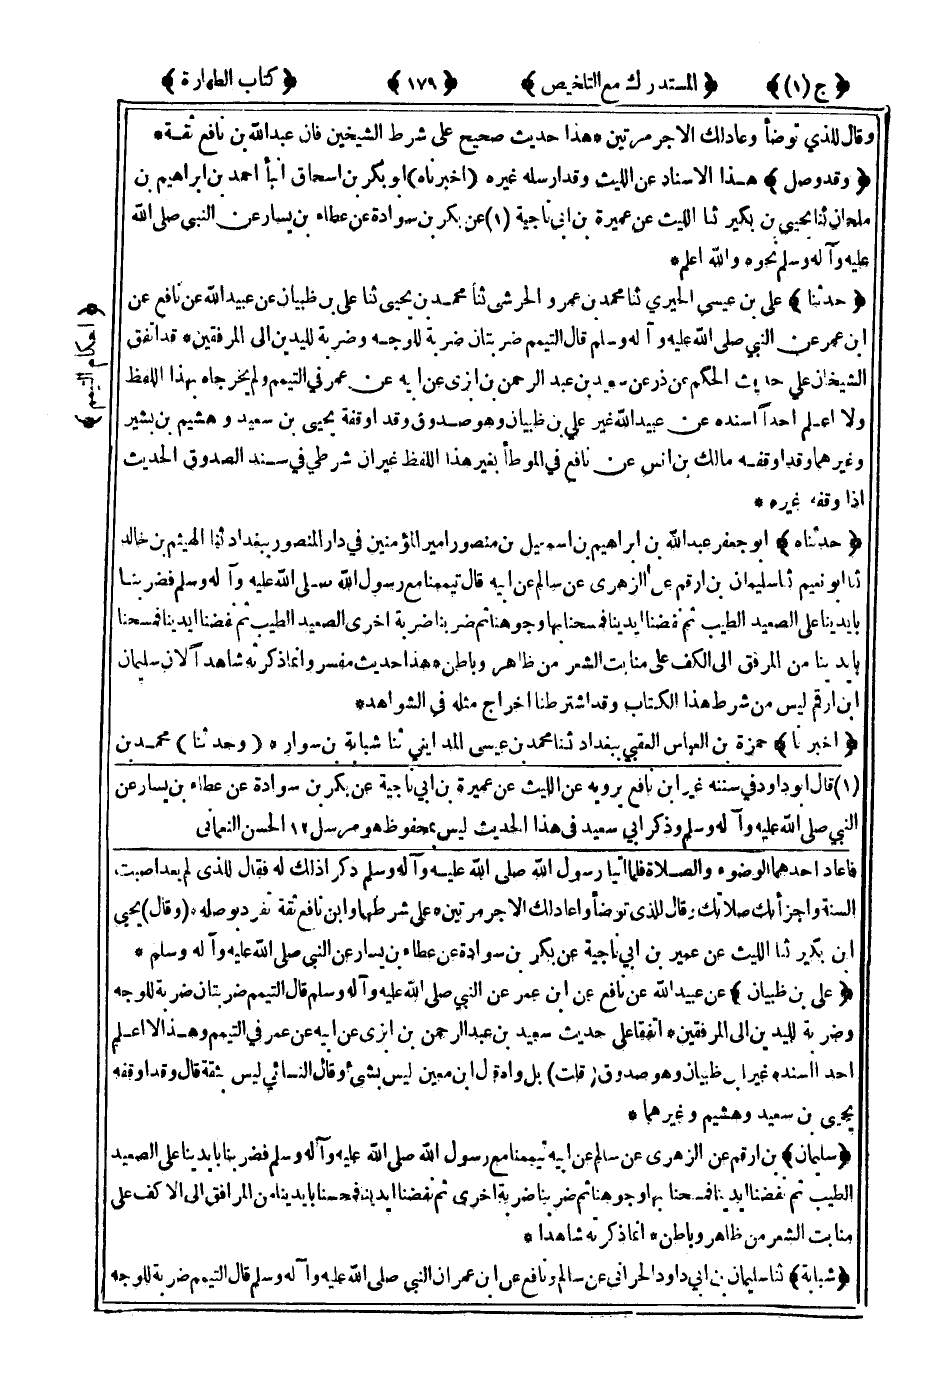 ﴿ ج (١) ﴾ ﴿ المستدرك مع التلخيص ﴾ ﴿ ١٧٩ ﴾ ﴿ كتاب الطهارة ﴾
وقال للذي توضأ وعاد لك الاجر مرتين * هذا حديث صحيح على شرط الشيخين فان عبدالله بن نافع ثقة *
﴿ وقد وصل ﴾ هذا الاسناد عن الليث وقد ارسله غيره (اخبرناه) ابو بكر بن اسحاق انبأ احمد بن ابراهيم بن
ملحان ثنا يحيى بن بكير ثنا الليث عن عميرة بن ابي ناجية (١) عن بكر بن سوادة عن عطاء بن يسار عن النبي صلى الله
عليه وآله وسلم نحوه والله اعلم *
﴿ حدثنا ﴾ على بن عيسى الحيري ثنا محمد بن عمرو الحرشى ثنا محمد بن يحيى ثنا على بن ظبيان عن عبيد الله عن نافع عن
ابن عمر عن النبي صلى الله عليه وآله وسلم قال التيمم ضربتان ضربة للوجه وضربة لليدين الى المرفقين * قد اتفق
الشيخان على حديث الحكم عن ذر عن سعيد بن عبد الرحمن بن ابزى عن ابيه عن عمر في التيمم ولم يخرجاه بهذا اللفظ
ولا اعلم احداً اسنده عن عبيد الله غير علي بن ظبيان وهو صدوق وقد اوقفه يحيى بن سعيد وهشيم بن بشير
وغيرهما وقد اوقفه مالك بن انس عن نافع في الموطأ بغير هذا اللفظ غير ان شرطي في سند الصدوق الحديث
اذا وقفه غيره *
﴿ حدثناه ﴾ ابو جعفر عبدالله بن ابراهيم بن اسمعيل بن منصور امير المؤمنين في دار المنصور ببغداد ثنا الهيثم بن خالد
ثنا ابو نعيم ثنا سليمان بن ارقم عن الزهرى عن سالم عن ابيه قال تيممنا مع رسول الله صلى الله عليه وآله وسلم فضربنا
بايدينا على الصعيد الطيب ثم نفضنا ايدينا فمسحنا بها وجوهنا ثم ضربنا ضربة اخرى الصعيد الطيب ثم نفضنا ايدينا فمسحنا
بايدينا من المرفق الى الكف على منابت الشعر من ظاهر وباطن * هذا حديث مفسر وانما ذكرته شاهداً لان سليمان
ابن ارقم ليس من شرط هذا الكتاب وقد اشترطنا اخراج مثله في الشواهد *
﴿ اخبرنا ﴾ حمزة بن العباس العقبي ببغداد ثنا محمد بن عيسى المدايني ثنا شبابة بن سوار * (وحدثنا) محمد بن
﴿ احكام التيمم ﴾
(١) قال ابو داود في سننه غير ابن نافع يرويه عن الليث عن عميرة بن ابي ناجية عن بكر بن سوادة عن عطاء بن يسار عن
النبي صلى الله عليه وآله وسلم وذكر ابي سعيد فى هذا الحديث ليس بمحفوظ هو مرسل ١٢ الحسن النعمانى
فاعاد احدهما الوضوء والصلاة فلما اتيا رسول الله صلى الله عليه وآله وسلم ذكرا ذلك له فقال للذى لم يعد اصبت
السنة واجزأتك صلاتك وقال للذى توضأ واعاد لك الاجر مرتين * على شرطهما وابن نافع ثقة تفرد بوصله * (وقال) يحيى
ابن بكير ثنا الليث عن عمير بن ابي ناجية عن بكر بن سوادة عن عطاء بن يسار عن النبي صلى الله عليه وآله وسلم *
﴿ على بن ظبيان ﴾ عن عبيد الله عن نافع عن ابن عمر عن النبي صلى الله عليه وآله وسلم قال التيمم ضربتان ضربة للوجه
وضربة لليدين الى المرفقين * اتفقا على حديث سعيد بن عبد الرحمن بن ابزى عن ابيه عن عمر في التيمم وهذا لا اعلم
احدا اسنده غير ابن ظبيان وهو صدوق (قلت) بل واه قال ابن معين ليس بشىء وقال النسائي ليس بثقة قال وقد اوقفه
يحيى بن سعيد وهشيم وغيرهما *
﴿ سليمان ﴾ بن ارقم عن الزهرى عن سالم عن ابيه تيممنا مع رسول الله صلى الله عليه وآله وسلم فضربنا بايدينا على الصعيد
الطيب ثم نفضنا ايدينا فمسحنا بها وجوهنا ثم ضربنا ضربة اخرى ثم نفضنا ايدينا فمسحنا بايدينا من المرافق الى الاكف على
منابت الشعر من ظاهر وباطن * انما ذكرته شاهدا *
﴿ شبابة ﴾ ثنا سليمان بن ابي داود الحرانى عن سالم ونافع عن ابن عمر ان النبي صلى الله عليه وآله وسلم قال التيمم ضربة للوجه